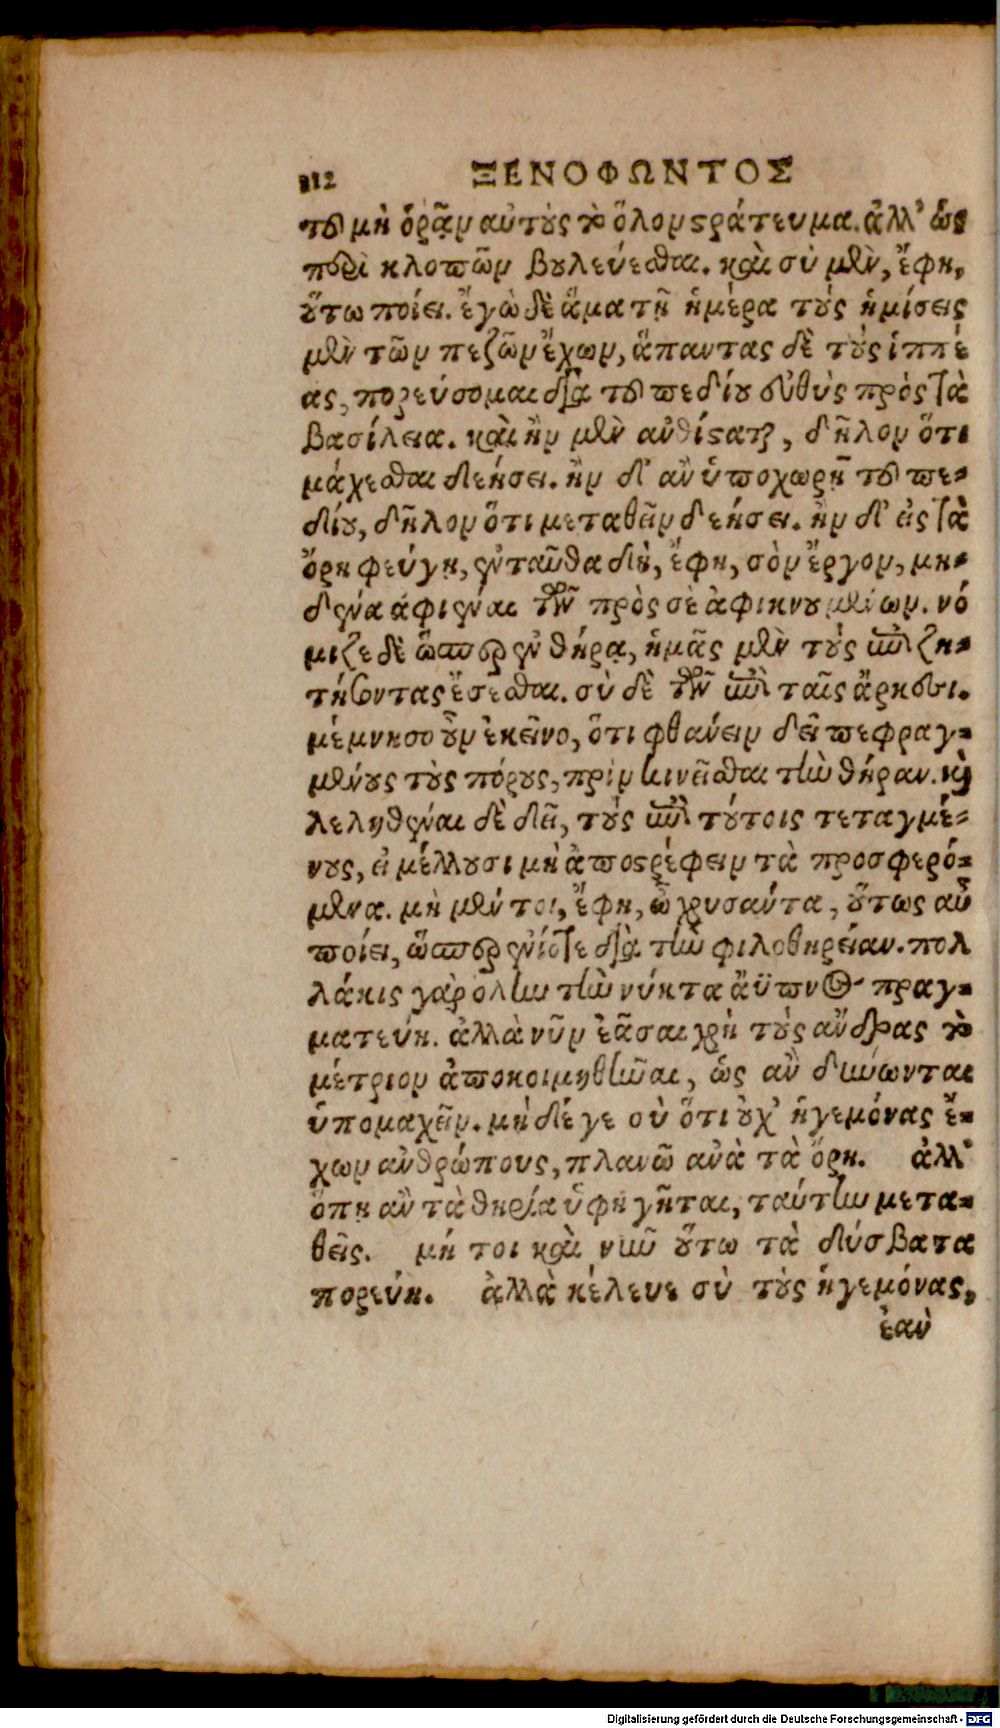 112 ΞΕΝΟΦΩΝΤΟΣ
τοῦ μὴ ὁρᾷν αὐτοὺς τὸ ὅλον στράτευμα. ἀλλ' ὡς
περὶ κλοπῶν βουλεύεσθαι. καὶ σὺ μὲν, ἔφη,
οὕτω ποίει. ἔγὼ δὲ ἅμα τῇ ἡμέρα τοὺς ἡμίσεις
μὲν τῶν πεζῶν ἔχων, ἅπαντας δὲ τοὺς ἱππέ
ας, πορεύσομαι διὰ τοῦ πεδίου εὐθὺς πρὸς τὰ
βασίλεια. καὶ ἢν μὲν ἀνθίσατται, δῆλον ὅτι
μάχεσθαι δεήσει. ἢν δ' ἂν ὑποχωρῇ τοῦ πε-
δίου, δῆλον ὅτι μεταθεῖν δεήσει. ἢν δ' εἰς τὰ
ὄρη φεύγῃ, ἐνταῦθα δὴ, ἔφη, σὸν ἔργον, μη-
δένα ἀφιέναι τῶν πρὸς σὲ ἀφικνουμένων. νό
μιζε δὲ ὥσπερ ἐν θήρᾳ, ἡμᾶς μὲν τοὺς ἐπιζη-
τήσοντας ἔσεσθαι. σὺ δὲ τῶν ἐπὶ ταῖς ἄρκυσι.
μέμνησο οὖν ἐκεῖνο, ὅτι φθάνειν δεῖ πεφραγ-
μένους τοὺς πόρους, πρὶν κινεῖσθαι τὴν θήραν. καὶ
λεληθέναι δὲ δεῖ, τοὺς ἐπὶ τούτοις τεταγμέ-
νους, εἰ μέλλουσι μὴ ἀποστρέφειν τὰ προσφερό-
μενα. μὴ μέντοι, ἔφη, ὦ χρυσάντα, οὕτως αὖ
ποίει, ὥσπερ ἐνίοτε διὰ τὴν φιλοθηρείαν. πολ
λάκις γὰρ ὅλην τὴν νύκτα ἄϋπνος πραγ-
ματεύῃ. ἀλλὰ νῦν ἐᾶσαι χρὴ τοὺς ἄνδρας τὸ
μέτριον ἀποκοιμηθῆναι, ὡς ἂν δύνωνται
ὑπομαχεῖν. μὴ δέ γε οὐ ὅτι οὐχ' ἡγεμόνας ἔ-
χων ἀνθρώπους, πλανῶ ἀνὰ τὰ ὄρη. ἀλλ'
ὅπῃ ἂν τὰ θηρία ὑφηγῆται, ταύτην μετα-
θεῖς. μή τοι καὶ νῦν οὕτω τὰ δύσβατα
πορεύῃ. ἀλλὰ κέλευε σὺ τοὺς ἡγεμόνας,
ἐὰν
Digitalisierung gefördert durch die Deutsche Forschungsgemeinschaft - DFG